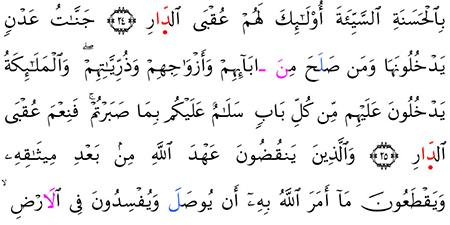 بِالْحَسَنَةِ السَّيِّئَةَ أُوْلَٰئِكَ لَهُمْ عُقْبَى الدَّارِ ۝٢٤ جَنَّاتُ عَدْنٍ
يَدْخُلُونَهَا وَمَن صَلَحَ مِنَ ـ ابَآئِهِمْ وَأَزْوَاجِهِمْ وَذُرِّيَّاتِهِمْ وَالْمَلَٰئِكَةُ
يَدْخُلُونَ عَلَيْهِم مِّن كُلِّ بَابٍ سَلَٰمٌ عَلَيْكُم بِمَا صَبَرْتُمْ فَنِعْمَ عُقْبَى
الدَّارِ ۝٢٥ وَالَّذِينَ يَنقُضُونَ عَهْدَ اللَّهِ مِنۢ بَعْدِ مِيثَٰقِهِۦ
وَيَقْطَعُونَ مَآ أَمَرَ اللَّهُ بِهِۦٓ أَن يُوصَلَ وَيُفْسِدُونَ فِى الَارْضِ